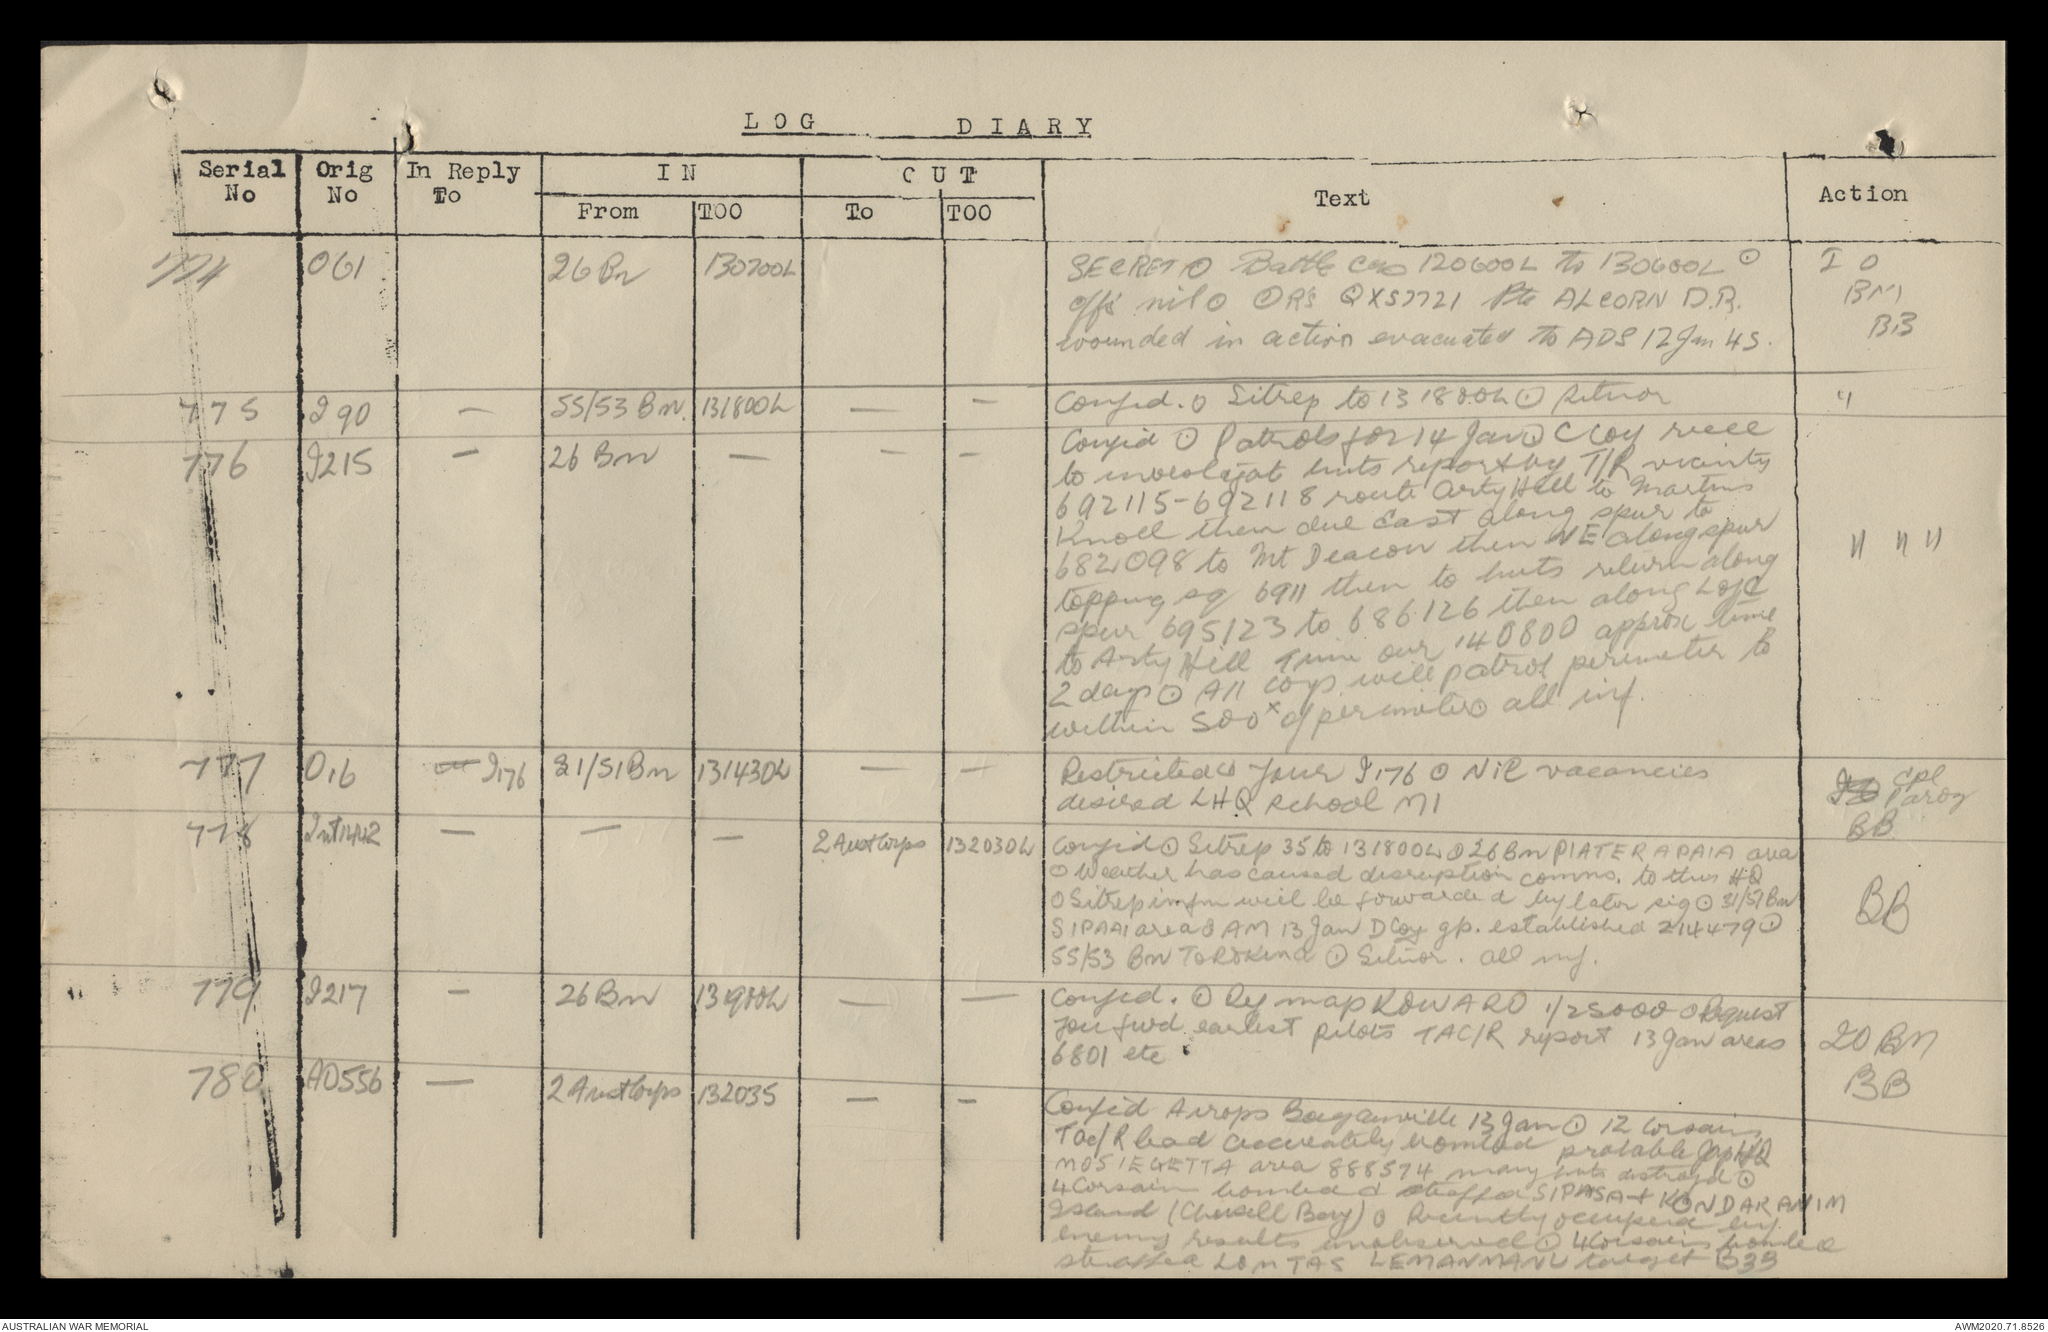 LOG DIARY
Serial No Orig No In Reply To IN OUT Text Action
From TOO To TOO
774 O61 26 Bn 130700L SECRET ⊙ Battle cas 120600L to 130600L ⊙ I O
offs nil ⊙ ORs QX57721 Pte ALCORN D.R. BM
wounded in action evacuated to ADS 12 Jan 45. BB
775 I 90 — 55/53 Bn. 131800L — — Confid. ⊙ Sitrep to 131800L ⊙ Sitnor "
776 I215 — 26 Bn — — — Confid ⊙ Patrols for 14 Jan ⊙ C Coy recce
to investigat huts report by T/R vicinity
692115-692118 route Arty Hill to Martins
Knoll then due East along spur to
682098 to Mt Deacon then NE along spur " " "
topping sq 6911 then to huts return along
spur 695123 to 686126 then along L of C
to Arty Hill Time our 140800 approx time
2 days ⊙ All coys will patrol perimeter to
within 500x of perimeter ⊙ all inf.
777 O16 — I176 31/51 Bn 131430L — — Restricted ⊙ Your I176 ⊙ Nil vacancies Cpl
desired LHQ School MI BB
778 Int1442 — — — 2 Aust Corps 132030L Confid ⊙ Sitrep 35 to 131800L ⊙ 26 Bn PIATERAPAIA area
⊙ Weather has caused disruption comms. to this HQ
⊙ Sitrep infm will be forwarded by later sig ⊙ 31/51 Bn BB
SIPAAI area ⊙ AM 13 Jan D Coy gp. established 214479 ⊙
55/53 Bn TOROKINA ⊙ Sitnor. all inf.
779 I217 — 26 Bn 131900L — — Confid. ⊙ Ref map ROWARD 1/25000 ⊙ Request
you fwd earliest pilots TAC/R report 13 Jan areas IO BM
6801 etc BB
780 AO556 — 2 Aust Corps 132035 — — Confid Airops Bouganville 13 Jan ⊙ 12 Corsairs
Tac/R lead accurately bombed probable Jap HQ
MOSIEGETTA area 888574 many huts distroyd ⊙
4 Corsairs bombed & straffed SIPASA + KONDAKANIM
Island (Chuall Bay) ⊙ Recently occupied by
enemy results unobserved ⊙ 4 Corsairs bombed
straffed LOMTAS LEMANMANU target B33
AUSTRALIAN WAR MEMORIAL AWM2020.71.8526